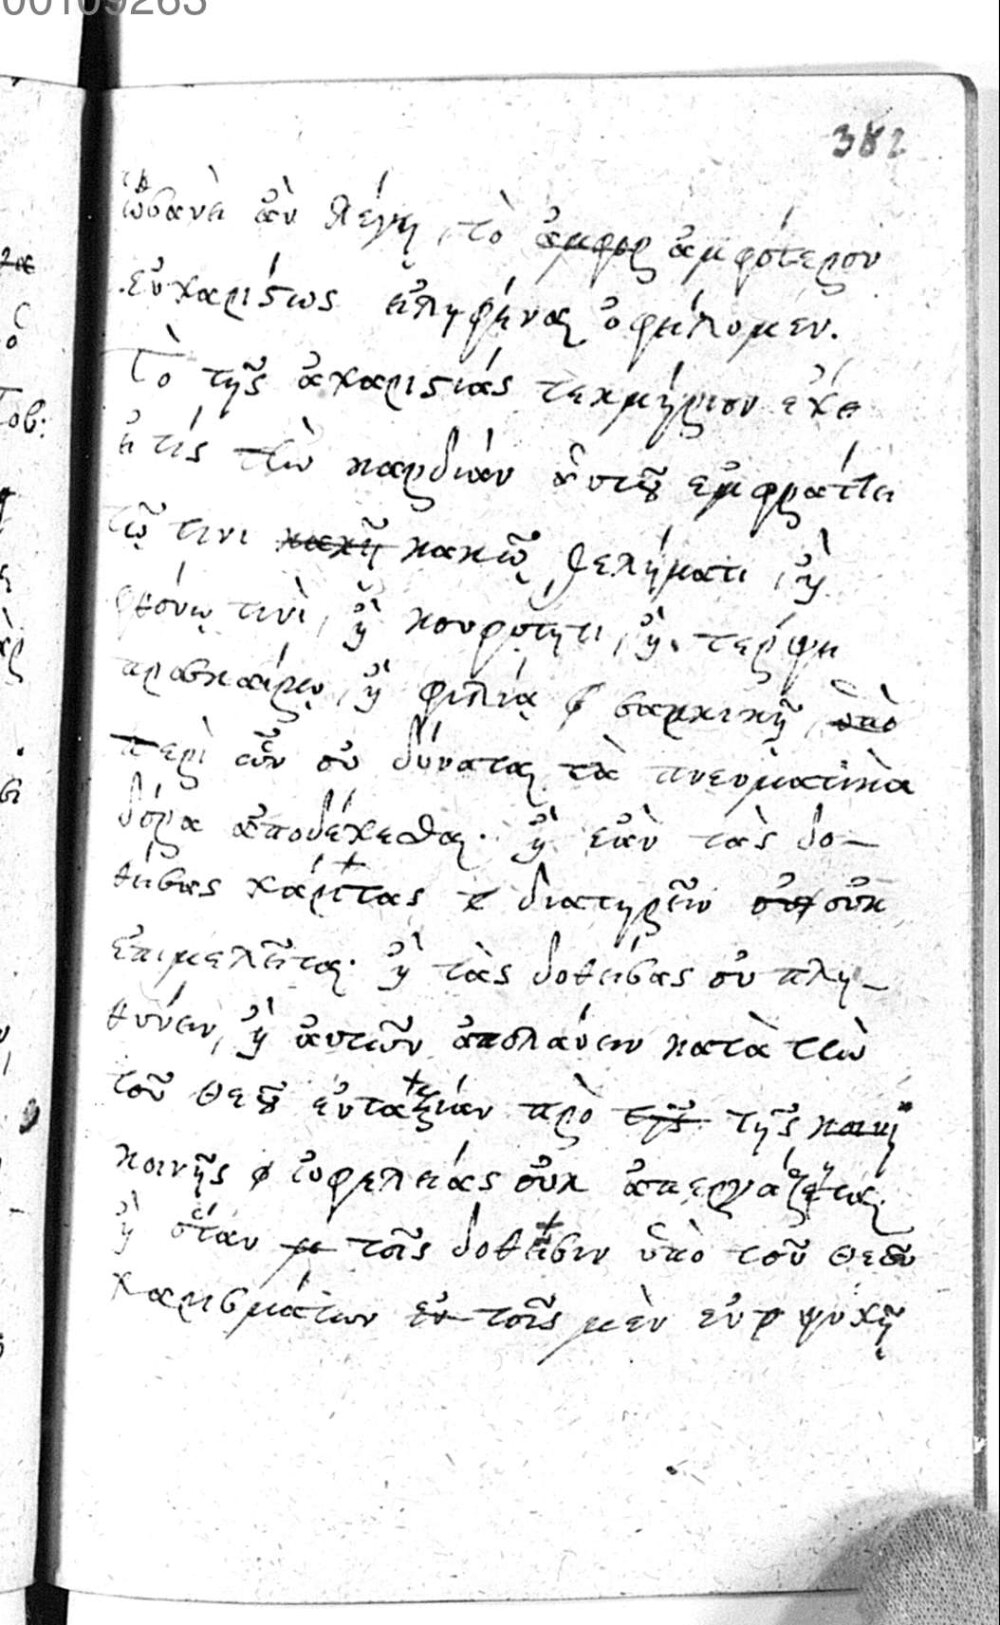 00109263
382
ὡσανεὶ ἂν λέγῃ, τὸ ἀμφορ ἀμφότερον
εὐχαρίστως εἰληφῆναι ὀφείλομεν.
Τὸ τῆς ἀχαριστιάς τεκμήριον ἔχει
εἴ τίς τὴν καρδιάν ἀυτοῦ ἐμφράττει
τῷ τινι κακῇ κακῷ θελήματι, ἢ
φθόνῳ τινὶ, ἢ κουφότητι, ἢ τέρψει
προσκαίρῳ, ἢ φιλίᾳ σαρκικῇ, ὑπὸ
περὶ ὧν οὐ δύναται τὰ πνευματικὰ
δόρα ἀποδέχεσθαι. ἢ ἐὰν τὰς δο-
θείσας χάριτας διατηρεῖν οὐχ οὐκ
ἐπιμελεῖται. ἢ τὰς δοθείσας οὐ πλη-
θύνειν, ἢ ἀυτῶν ἀπολάυειν κατὰ τὴν
τοῦ Θεοῦ ἐυταξιάν πρὸ τῆς τῆς κοινῆ
κοινῆς ὠφελειάς οὐκ ἀπεργάζεται.
ἢ ὅταν μ τοῖς δοθεῖσιν ὑπὸ τοῦ Θεοῦ
χαρισμάτων ἐν τοῖς μὲν ἐν ψυχῇ